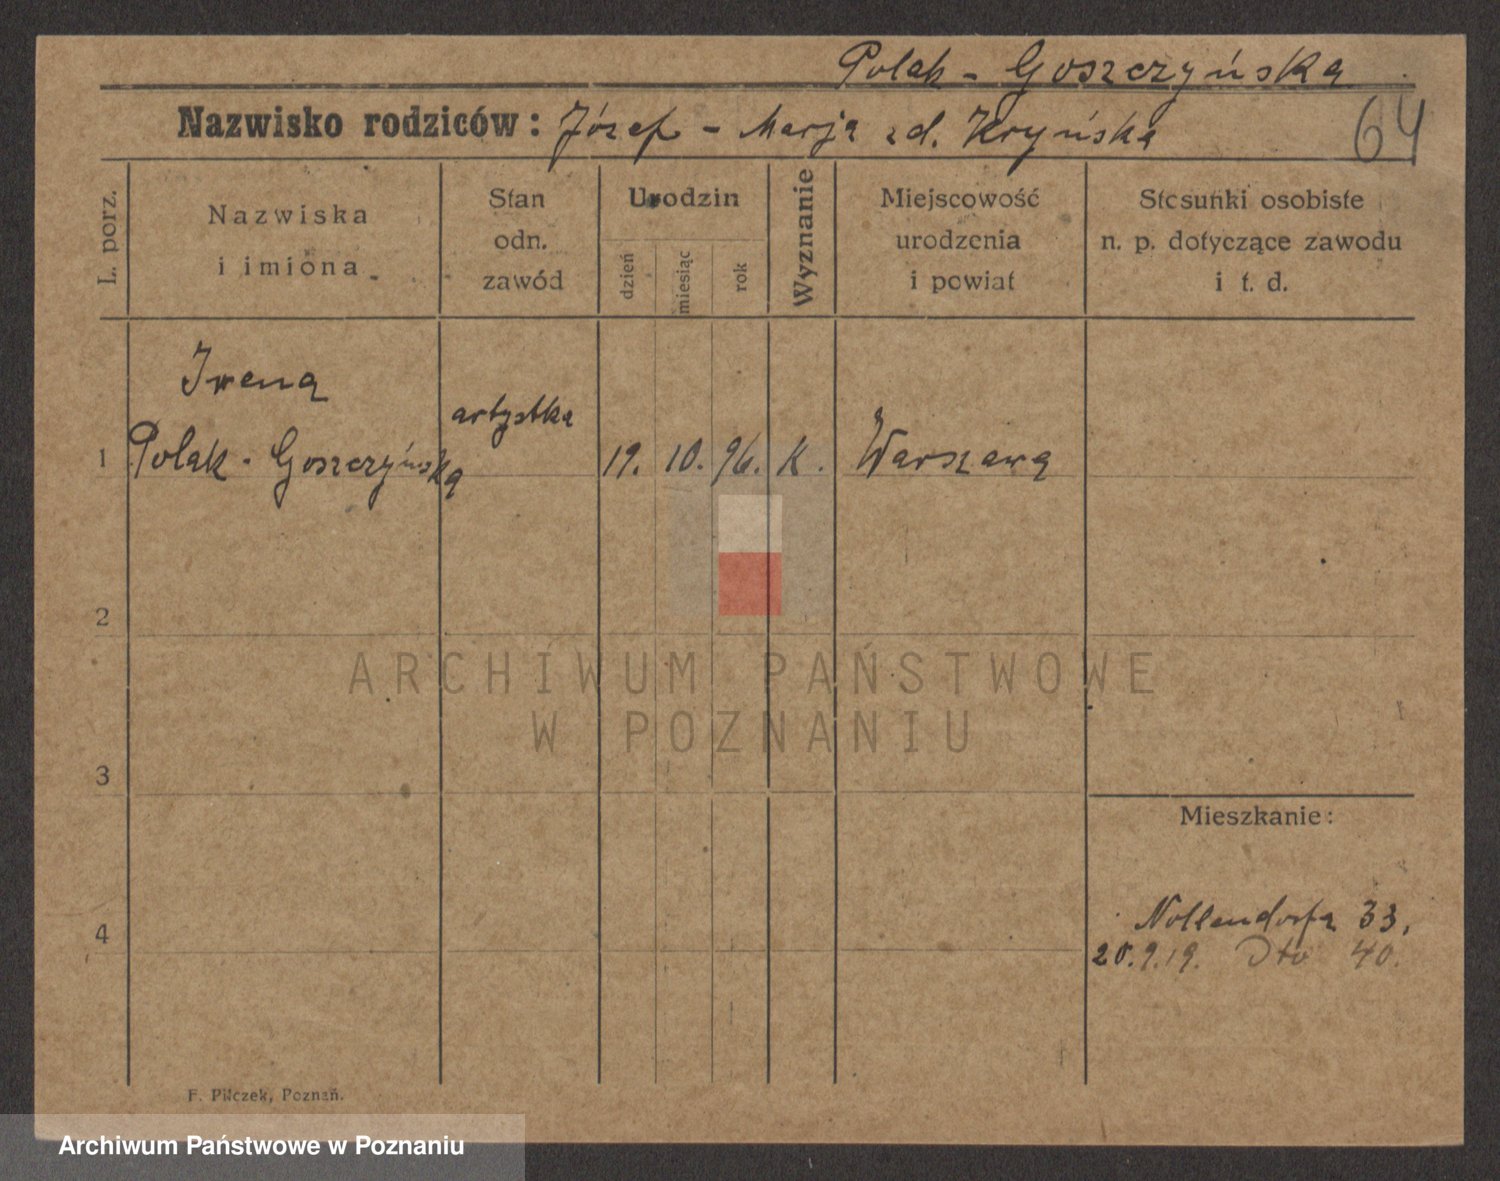 Polak - Goszczyńska
Nazwisko rodziców: Józef - Marja zd. Kryńska
64
L. porz.
Nazwiska
i imiona
Stan
odn.
zawód
Urodzin
dzień
miesiąc
rok
Wyznanie
Miejscowość
urodzenia
i powiat
Stosunki osobiste
n. p. dotyczące zawodu
i t. d.
Irena
1 Polak - Goszczyńska
artystka
19. 10. 96. K. Warszawa
2
ARCHIWUM PAŃSTWOWE
W POZNANIU
3
Mieszkanie:
4
Nollendorfa 33.
20.9.19. Dto 40.
F. Pilczek, Poznań.
Archiwum Państwowe w Poznaniu